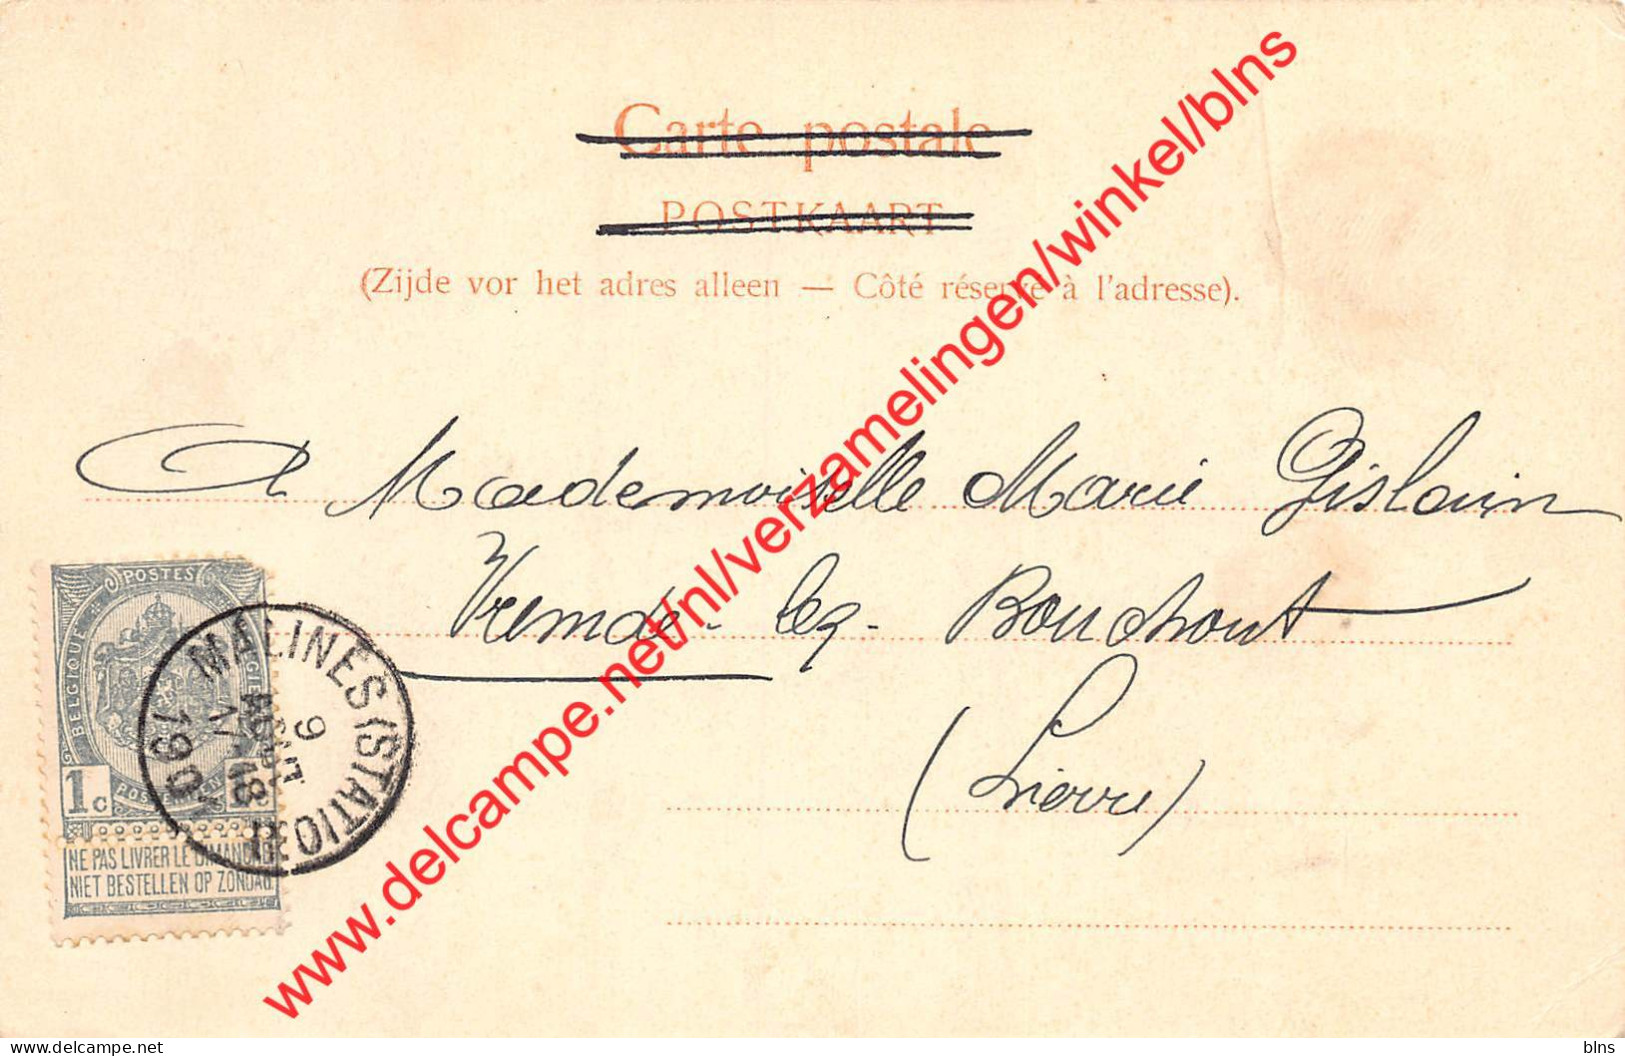 Carte postale
POSTKAART
(Zijde vor het adres alleen — Côté réservé à l'adresse).
A Mademoiselle Marie Gislain
Vremde - lez - Bouchout
(Lierre)
POSTES
BELGIQUE
1c
NE PAS LIVRER LE DIMANCHE
NIET BESTELLEN OP ZONDAG
MALINES (STATION)
9
AOUT
17-18
190
www.delcampe.net/nl/verzamelingen/winkel/blns
blns